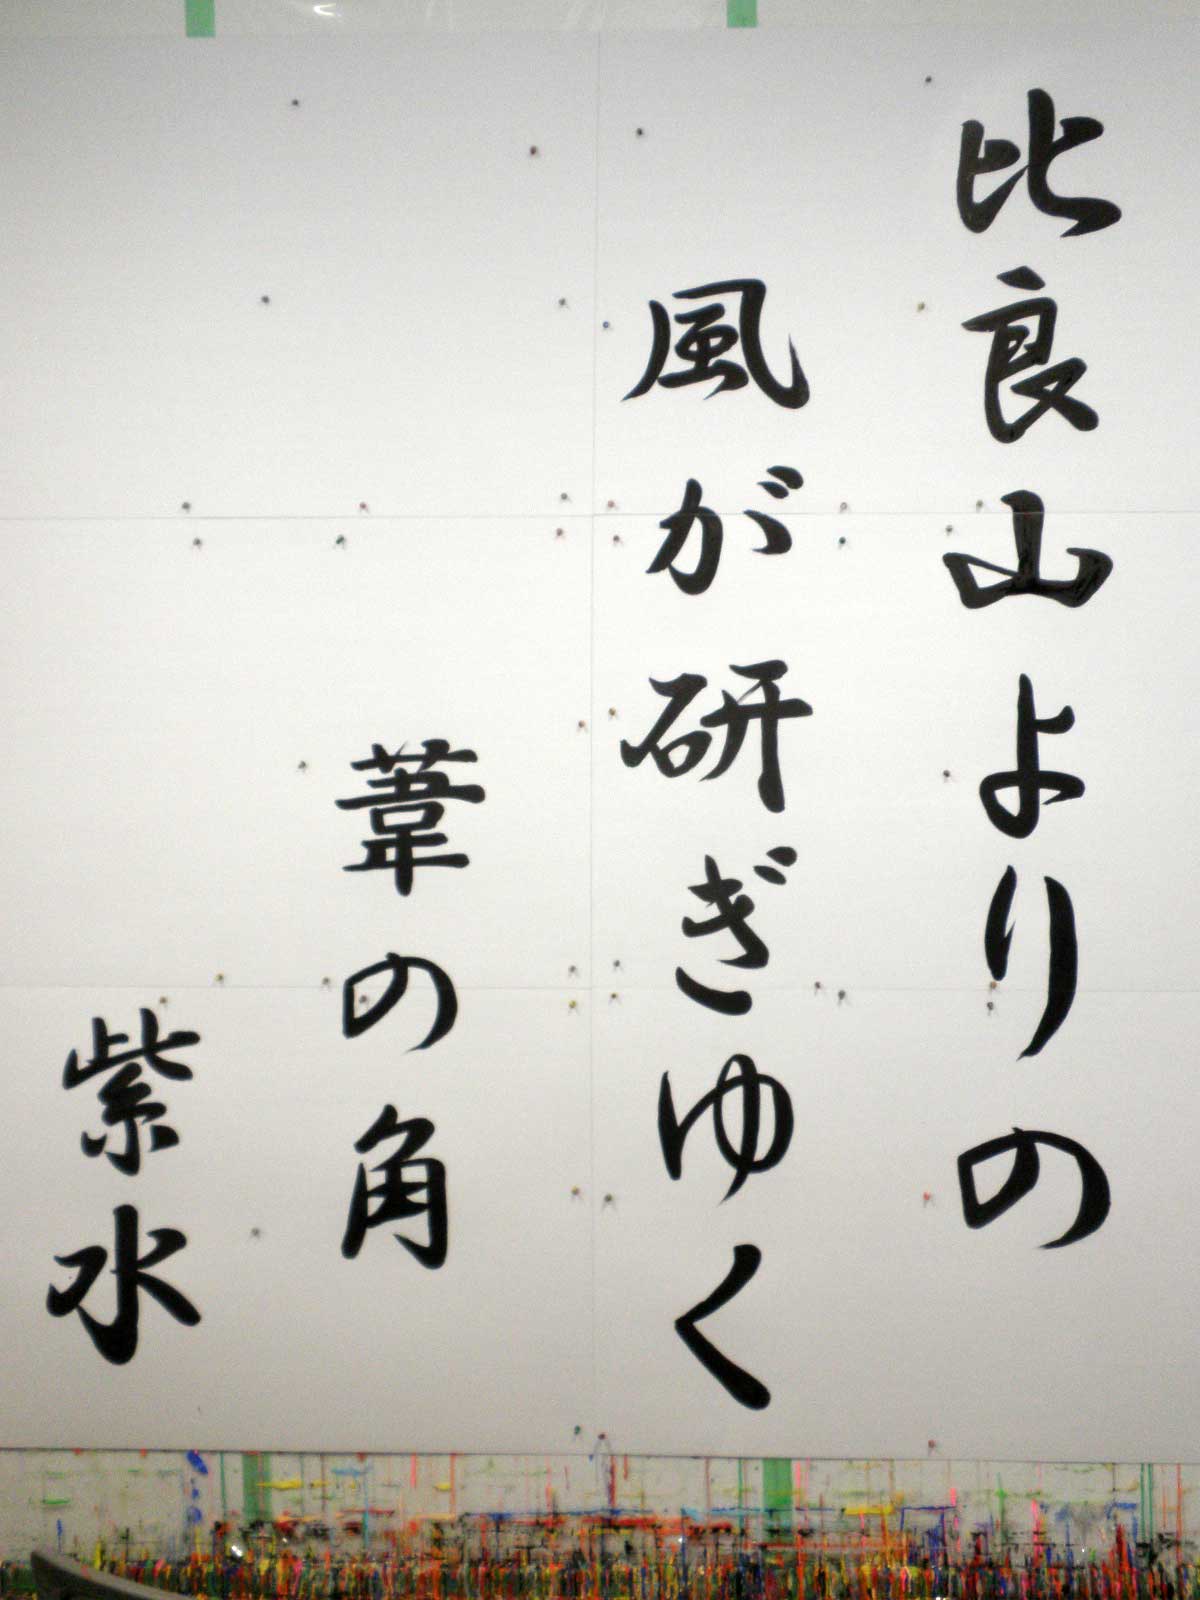 比良山よりの
風が研ぎゆく
葦の角
紫水